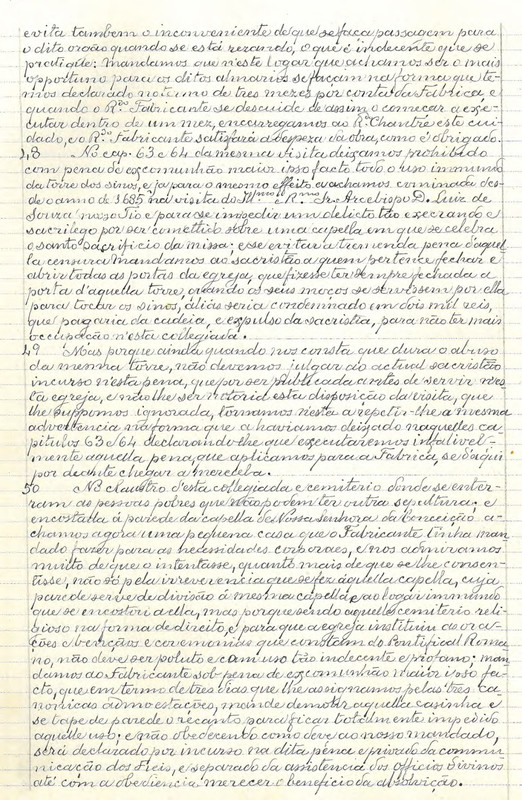 evita tambem o inconveniente de que se faça passagem para
o dito orgão quando se está rezando, o que é indecente que se
pratique: Mandamos que n'este logar que achamos ser o mais
opportuno para os ditos almarios se façam na forma que te-
mos declarado no turno de tres mezes por conta da Fabrica, e
quando o R.do Fabricante se descuide de assim o começar a exe-
cutar dentro de um mez, encarregamos ao R.do Chantre este cui-
dado, e o R.do Fabricante satisfará a despeza da obra, como é obrigado.
48 No cap. 63 e 64 da mesma visita deixamos prohibido
com pena de excomunhão maior ipso facto todo o uso immundo
da torre dos sinos, e ja para o mesmo effeito a achamos cominada des-
de o anno de 1685 na visita do Ill.mo e R.mo Sr. Arcebispo D. Luiz de
Souza nosso Tio e para se impedir um delicto tão execrando e
sacrilego por ser comettido sobre uma capella em que se celebra
o santo sacrificio da missa; e se evitar a tremenda pena d'aquel-
la censura Mandamos ao sacristão a quem pertence fechar e
abrir todas as portas da egreja, que fizesse ter sempre fechada a
porta d'aquella torre, quando os seus moços se servissem por ella
para tocar os sinos, aliás seria condemnado em dois mil reis,
que pagaria da cadeia, e expulso da sacristia, para não ter mais
occupação n'esta collegiada.
49 Mas porque ainda quando nos consta que dura o abuso
da mesma torre, não devemos julgar ao actual sacristão
incurso n'esta pena, que por ser publicada antes de servir nes-
ta egreja, e não lhe ser notoria esta disposição da visita, que
lhe suppomos ignorada, tornamos n'esta a repetir-lhe a mesma
advertencia na forma que a haviamos deixado naquelles ca-
pitulos 63 e 64 declarando-lhe que executaremos infalivel-
mente aquella pena, que aplicamos para a Fabrica, se d'aqui
por deante chegar a merecel-a.
50 No claustro d'esta collegiada e cemiterio donde se enter-
ram as pessoas pobres que não podem ter outra sepultura, e
encostada á parede da capella de Nossa Senhora da Conceição a-
chamos agora uma pequena casa que o Fabricante tinha man-
dado fazer para as necessidades corporaes, e nos admiramos
muito de que o intentasse, quanto mais de que se lhe consen-
tisse, não só pela irreverencia que se fez áquella capella, cuja
parede serve de divisão á mesma capella, e ao logar immundo
que se encostou a ella, mas porque sendo aquelle cemiterio reli-
gioso na forma de direito, e para que a egreja instituiu as ora-
ções e bençãos e ceremonias que constam do Pontifical Roma-
no, não deve ser poluto e com uso tão indecente e profano; man-
damos ao Fabricante sob pena de excomunhão maior ipso fa-
cto, que em termo de tres dias que lhe assignamos pelas tres ca-
nonicas admoestações, mande demolir aquella casinha e
se tape de parede o recanto para ficar totalmente impedido
aquelle uso; e não obedecendo como deve ao nosso mandado,
será declarado por incurso na dita pena e privado da commu-
nicação dos Fieis, e separado da assistencia dos officios divinos
até com a obediencia merecer o beneficio da absolvição.